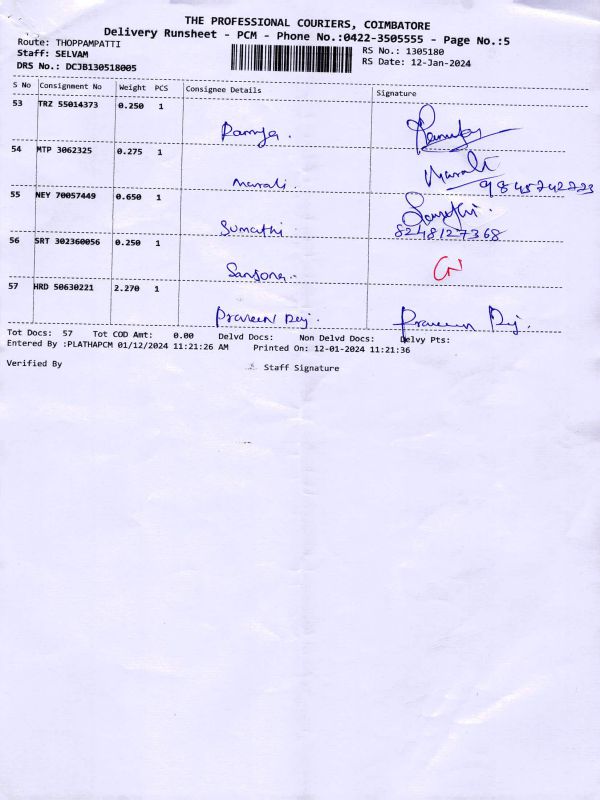 THE PROFESSIONAL COURIERS, COIMBATORE
Delivery Runsheet - PCM - Phone No.:0422-3505555 - Page No.:5
Route: THOPPAMPATTI
Staff: SELVAM
DRS No.: DCJB130518005
RS No.: 1305180
RS Date: 12-Jan-2024
S No Consignment No Weight PCS Consignee Details Signature
53 TRZ 55014373 0.250 1
54 MTP 3062325 0.275 1
murali. Murali
9845742223
55 NEY 70057449 0.650 1
Sumathi Sumathi.
8248127368
56 SRT 302360056 0.250 1
57 HRD 50630221 2.270 1
Praveen Raj. Praveen Raj.
Tot Docs: 57 Tot COD Amt: 0.00 Delvd Docs: Non Delvd Docs: Delvy Pts:
Entered By :PLATHAPCM 01/12/2024 11:21:26 AM Printed On: 12-01-2024 11:21:36
Verified By Staff Signature